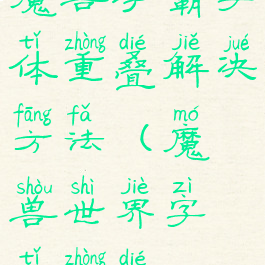 tǐ zhòng dié jiě jué
体重叠解决
fāng fǎ mó
方法（魔
shòu shì jiè zì
兽世界字
tǐ zhòng dié